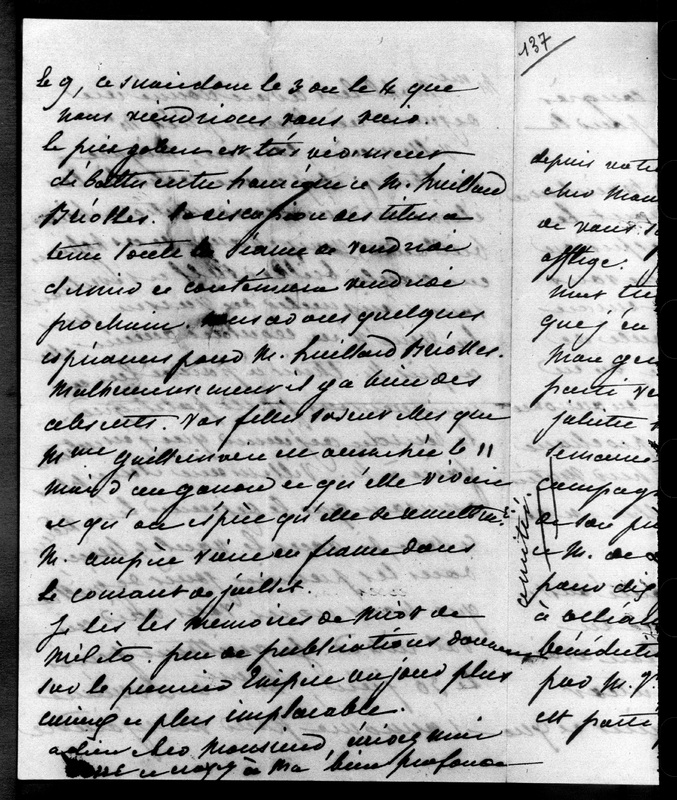 137
le 9, ce serait donc le 3 ou le 4 que
nous viendrions vous voir.
le prix gobert est très vivement
débattu entre hauréau et M. huillard
Bréolles. la discussion des titres a
tenu toute la séance de vendredi
dernier et continuera vendredi
prochain. nous avons quelques
espérances pour M. huillard Bréolles.
Malheureusement il y a bien des
absents. vos filles savent elles que
Mme est accouchée le 11
mai d'un garçon et qu'elle
et qu'on espère qu'elle
M. ampère vient en france dans
le courant de juillet.
je lis les mémoires de Miot de
Melito. peu de publications donnent
sur le premier Empire un jour plus
curieux et plus implacable.
adieu cher Monsieur,
et croyez à ma bien profonde
amitié.
depuis votre
cher Mon
de vous
afflige.
que j'en
Mon gen
parti
juliette
semaine
campag
de son
et M. de
pour
à
bénédicti
par M.
est parti